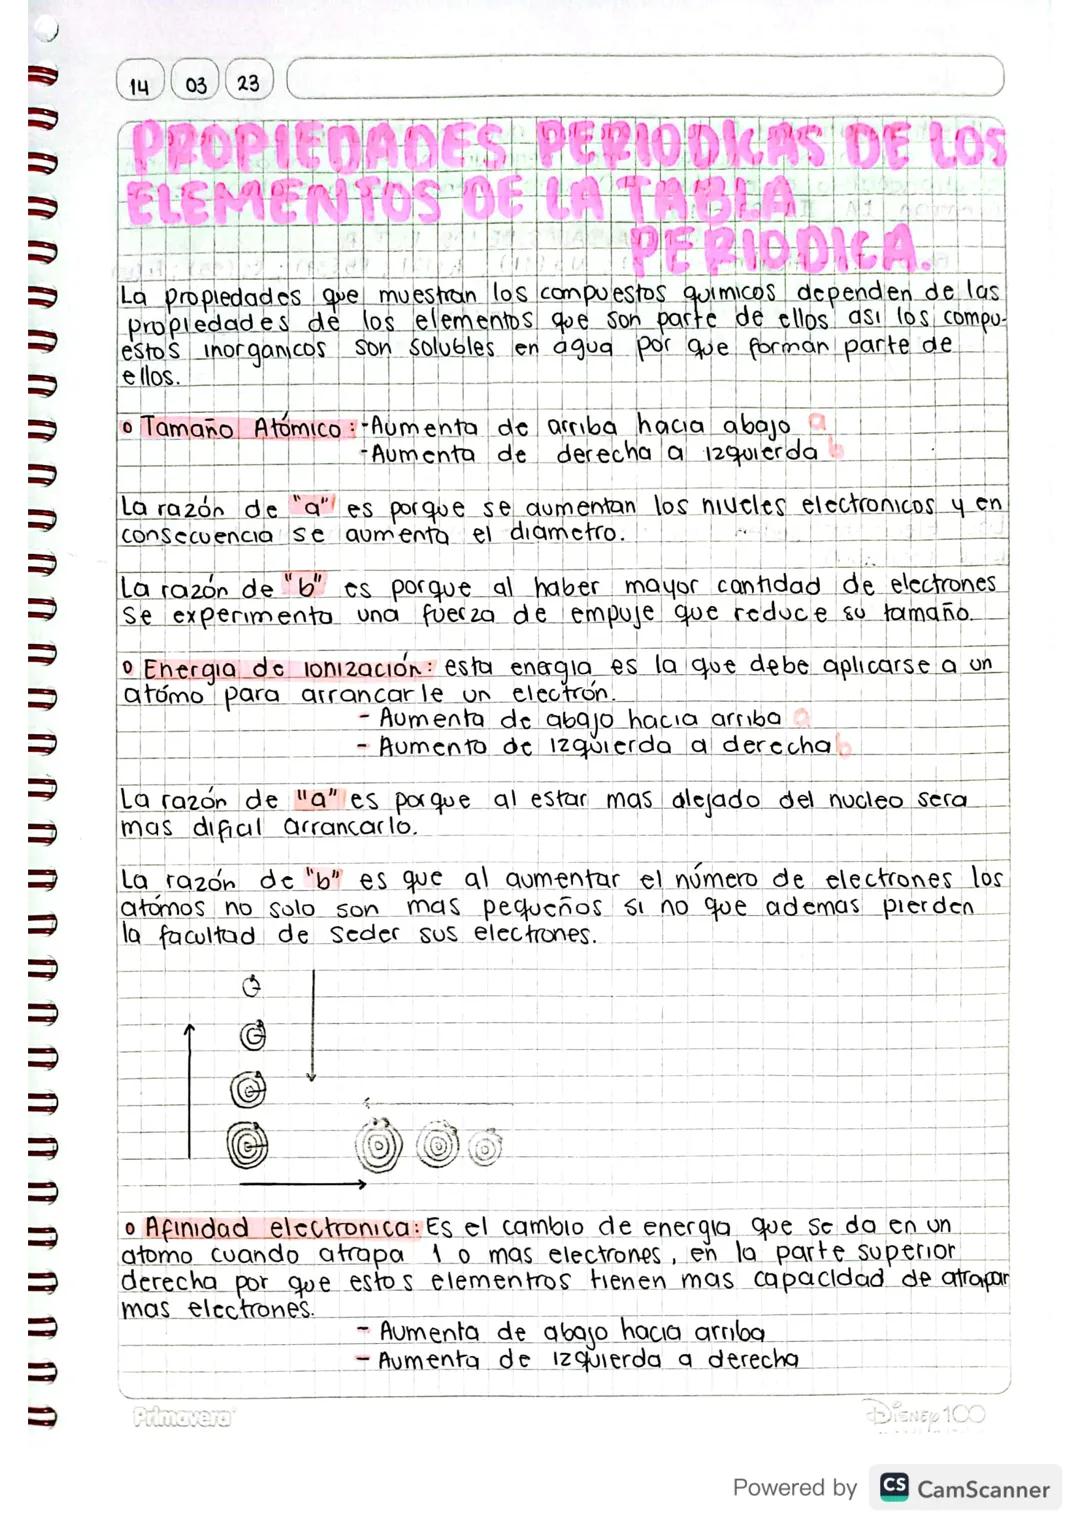 14 03 23
PROPIEDADES PERIODICAS DE LOS
ELEMENTOS DE LA TABLA
PERIODICA.
La propiedades que muestran los compuestos quimicos dependen de las
propiedades de los elementos que son parte de ellos asi los compu-
estos inorganicos son solubles en agua por que forman parte de
ellos.
o Tamaño Atómico: -Aumenta de arriba hacia abajo a
-Aumenta de derecha a izquierda b
La razón de "a" es porque se aumentan los niveles electronicos y en
consecuencia se aumenta el diametro.
La razón de "b" es porque al haber mayor cantidad de electrones
se experimenta una fuerza de empuje que reduce su tamaño.
o Energia de ionización: esta energia es la que debe aplicarse a un
atómo para arrancarle un electrón.
- Aumenta de abajo hacia arriba a
- Aumenta de izquierda a derecha b
La razón de "a" es porque al estar mas alejado del nucleo sera
mas dificil arrancarlo.
La razón de "b" es que al aumentar el número de electrones los
atómos no solo son mas pequeños si no que ademas pierden
la facultad de seder sus electrones.
o Afinidad electronica: Es el cambio de energia que se da en un
atomo cuando atrapa 1 o mas electrones, en la parte superior
derecha por que estos elementros tienen mas capacidad de atrapar
mas electrones.
- Aumenta de abajo hacia arriba
- Aumenta de izquierda a derecha
Primavera
Disney 100
Powered by CS CamScanner